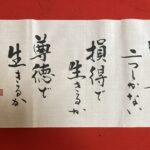 二つしかない
損得で
生きるか
尊徳で
生きるか